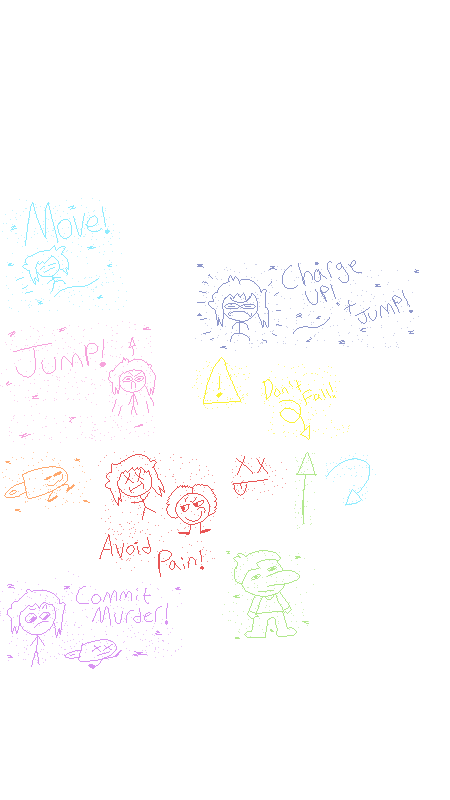 Move!
Charge
UP!
+ JUMP!
Jump!
Don't
Fall!
Avoid
Pain!
Commit
Murder!